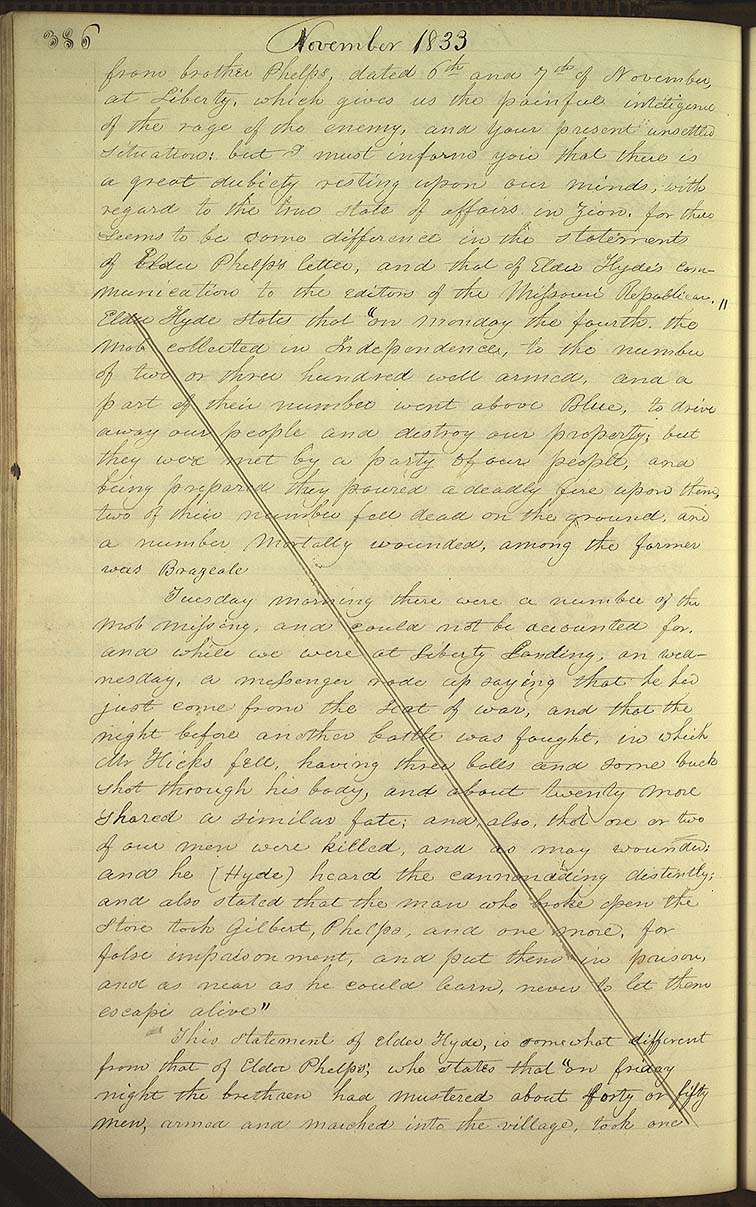 386
November 1833
from brother Phelps, dated 6th and 7th of November,
at Liberty, which gives us the painful inteligence
of the rage of the enemy, and your present unsettled
situation: but I must inform you that there is
a great dubiety resting upon our minds, with
regard to the true state of affairs in Zion, for there
seems to be some difference in the statements
of Elder Phelps letter, and that of Elder Hydes com-
munication to the editors of the Missouri Republican. "
Elder Hyde states that "on monday the fourth. the
mob collected in Independence, to the number
of two or three hundred well armed, and a
part of their number went above Blue, to drive
away our people and destroy our property; but
they were met by a party of our people, and
being prepared they poured a deadly fire upon them,
two of their number fell dead on the ground, and
a number mortally wounded, among the former
was Brazeale
Tuesday morning there were a number of the
mob missing, and could not be accounted for.
and while we were at Liberty Landing, on wed-
nesday, a messenger rode up saying that he had
just come from the seat of war, and that the
night before another battle was fought, in which
Mr Hicks fell, having three balls and some buck
shot through his body, and about twenty more
shared a similar fate; and also, that one or two
of our men were killed, and as may wounded:
and he (Hyde) heard the cannonadeing distinctly;
and also stated that the man who broke open the
store took Gilbert, Phelps, and one more, for
false imprisonment, and put them in prison,
and as near as he could learn, never to let them
escape alive"
This statement of elder Hyde, is somewhat different
from that of Elder Phelps; who states that "on friday
night the brethren had mustered about forty or fifty
men, armed and marched into the village, took one